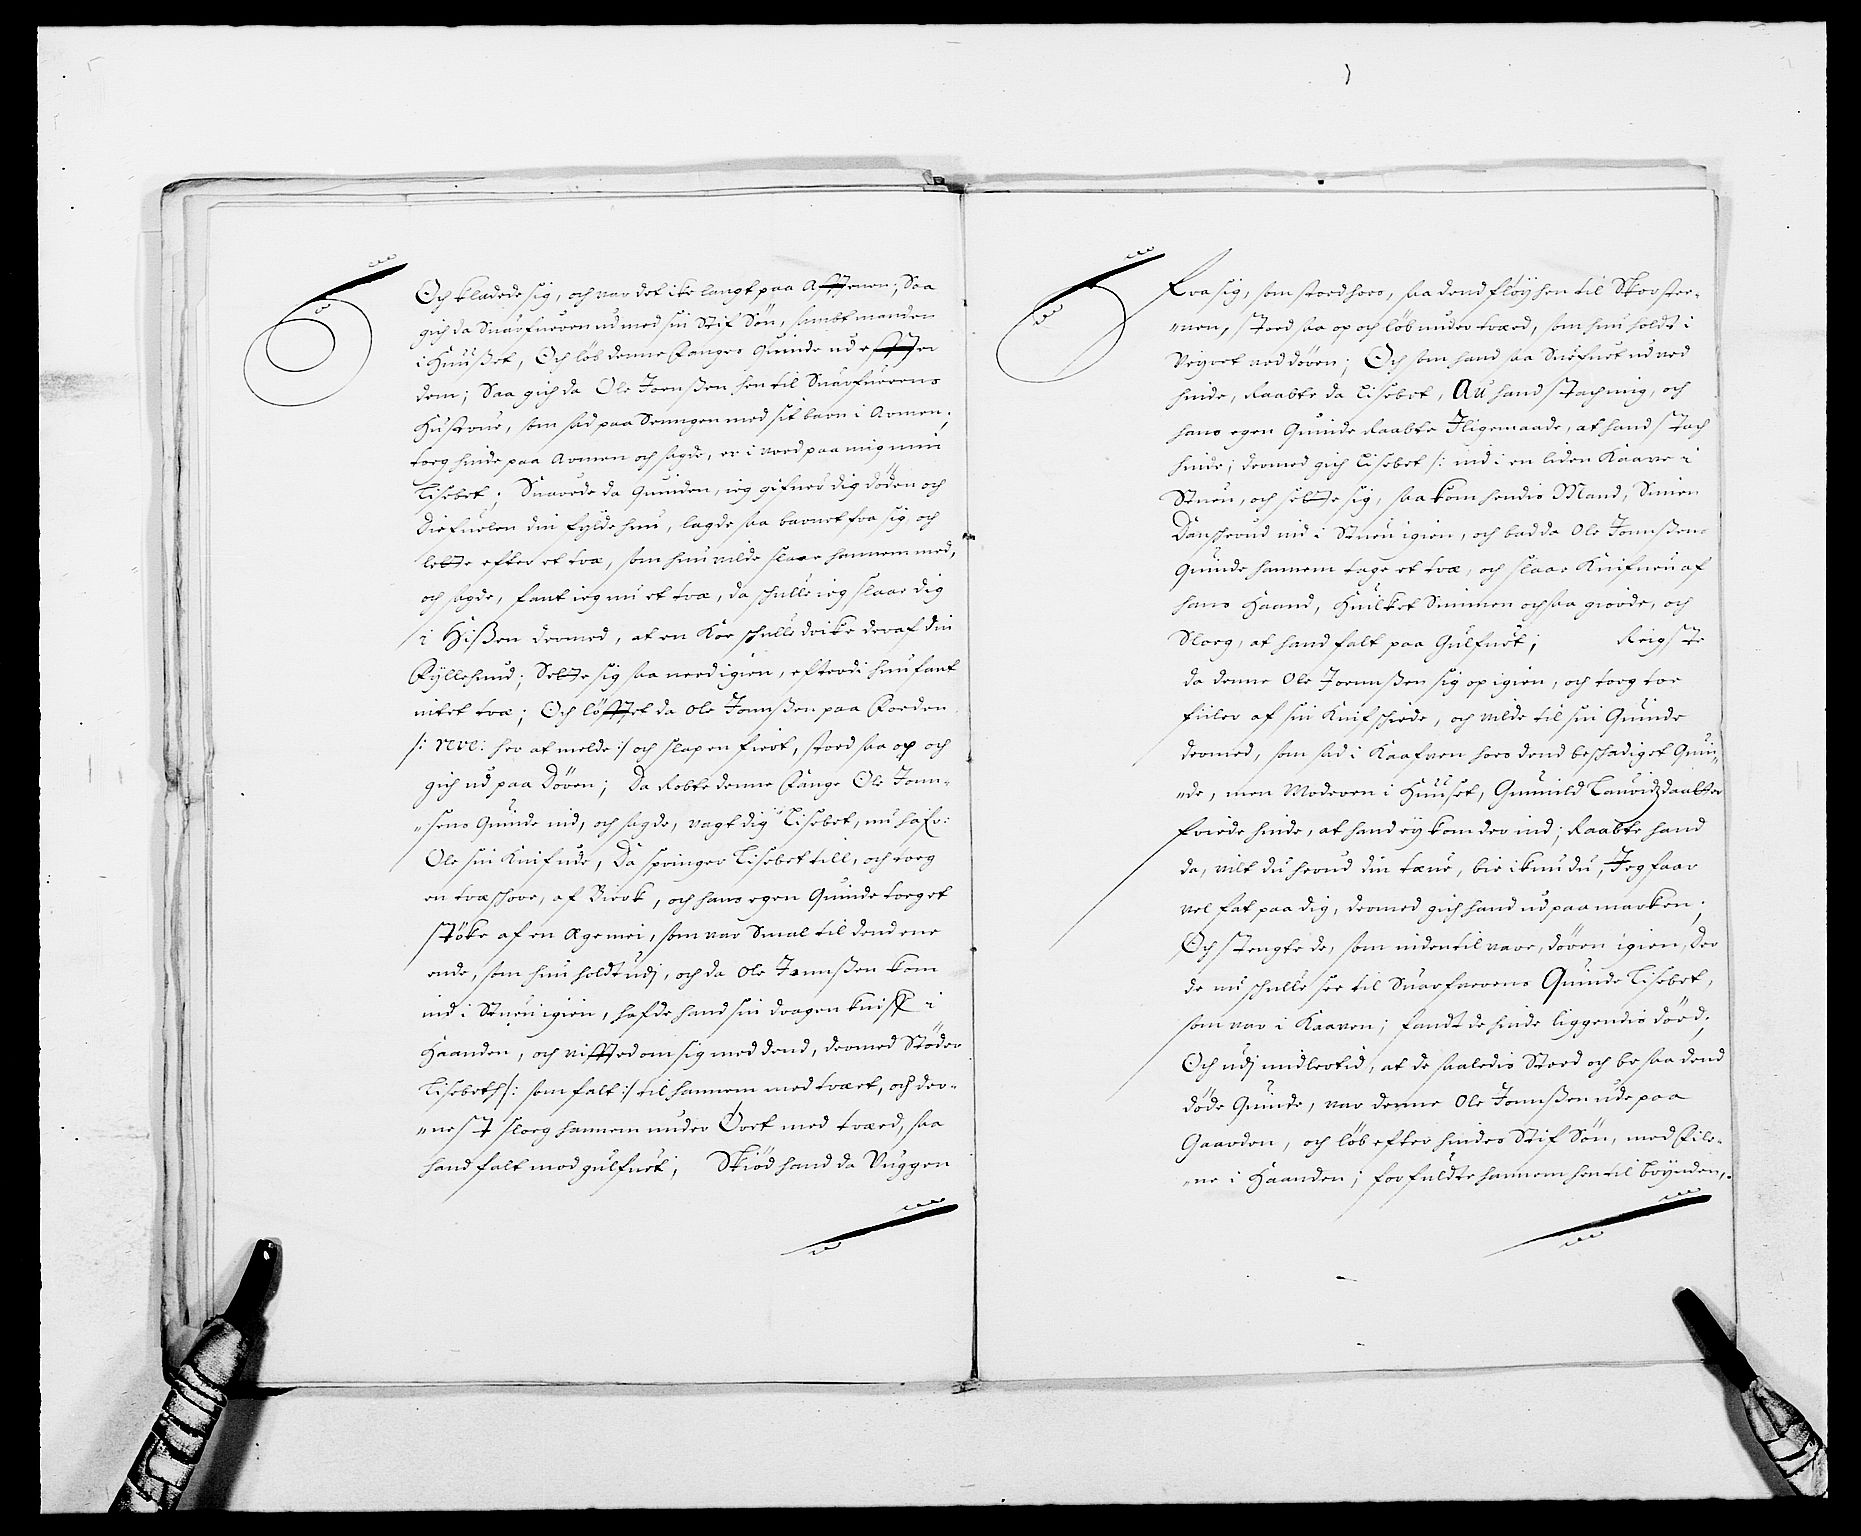 Och kladede sig, och var det icke langt paa Afftenen; Saa
gich da Snarfueren ud med sin Stif Søn, sambt manden
i Huußet, Och løb denne Fanges Quinde ud effter
dem; Saa gich da Ole Joenßen hen til Snarfuerens
Hustrue, som sad paa Sengen med sit barn i Armen;
toeg hinde paa Armen och sagde, er i vred paa mig min
Lisebet; Suarede da Quinden, ieg gifuer dig døden och
Diefuelen din fylde hun, lagde saa barnet fra sig, och
lette efter et træ, som hun vilde slaae hannem med,
och sagde, fant ieg nu et træ, da schulle ieg slaae dig
i Hißen dermed, at en Koe schulle dricke der af din
Fyllehund; Sette sig saa ned igien, efterdi hun fant
intet træ; Och løfftet da Ole Jonnßen paa Foeden
/: reve: her at melde :/ och slap en fiert, stoed saa op och
gich ud paa Døren; Da Robte denne Fange Ole Jonn-
"sens Quinde ind, och sagde, vagt dig Lisebet, nu hafr:
Ole sin Knif ude, Da springer Lisebet till, och toeg
en træschoe, af Birck, och hans egen Quinde toeg et
støcke af en Age mei, som var Smal til dend ene
ende, som hun holdt udj, och da Ole Jonnßen kom
ind i Stuen igien, hafde hand sin dragen kniff i
Haanden, och viffted om sig med dend, dermed Støder
Lisebeth /: som falt :/ til hannem med træet, och der-
"nest sloeg hannem under Øret med træed, saa
hand falt mod gulfuet; Skiød hand da Vuggen
Fra sig, som stoed hoes, saa dend fløy hen til Skorsten-
"nen, Stoed saa op och løb under træed, som hun holdt i
Veyret ved døren; Och som hand saa Snefuet ud ved
hinde, Raabte da Lisebet, Au hand stach mig, och
hans egen Quinde Raabte Iligemaade, at hand stach
hinde; dermed gich Lisebet /: ind i en liden Kaave i
Stuen, och sette sig, saa kom hendis Mand, Simen
Danscherud ind i Stuen igien, och bad da Ole Jonnßens
Quinde hannem tage et træ, och slaae Knifuen af
hans Haand, Huilket Simmen ochsaa giorde, och
Sloeg, at hand falt paa Gulfuet; Reigste
da denne Ole Joennßen sig op igien, och toeg toe
fiiler af sin Knifschiede, och vilde til sin Quinde
dermed, som sad i Kaafven hoes dend beschadiget Quin-
"de, men Moderen i Huuset, Gunnild Lauridzdaatter
friede hinde, at hand ey kom der ind; Raabte hand
da, vilt du herud din tæve, bie ikun du, Jeg faar
vel fat paa dig, dermed gich hand ud paa marken;
Och stengte de, som indentil vare, døren igien, Der
de nu schulle see til Snarfuerens Quinde Lisebet,
som var i Kaaven; fandt de hinde liggendis død;
Och udj midlertid, at de saaledis Stoed och besaa dend
døde Quinde, var denne Ole Jonnßen ude paa
Gaarden, och løb efter hindes Stif Søn, med File-
"ne i Haanden; forfuldte hannem hen til brynden,